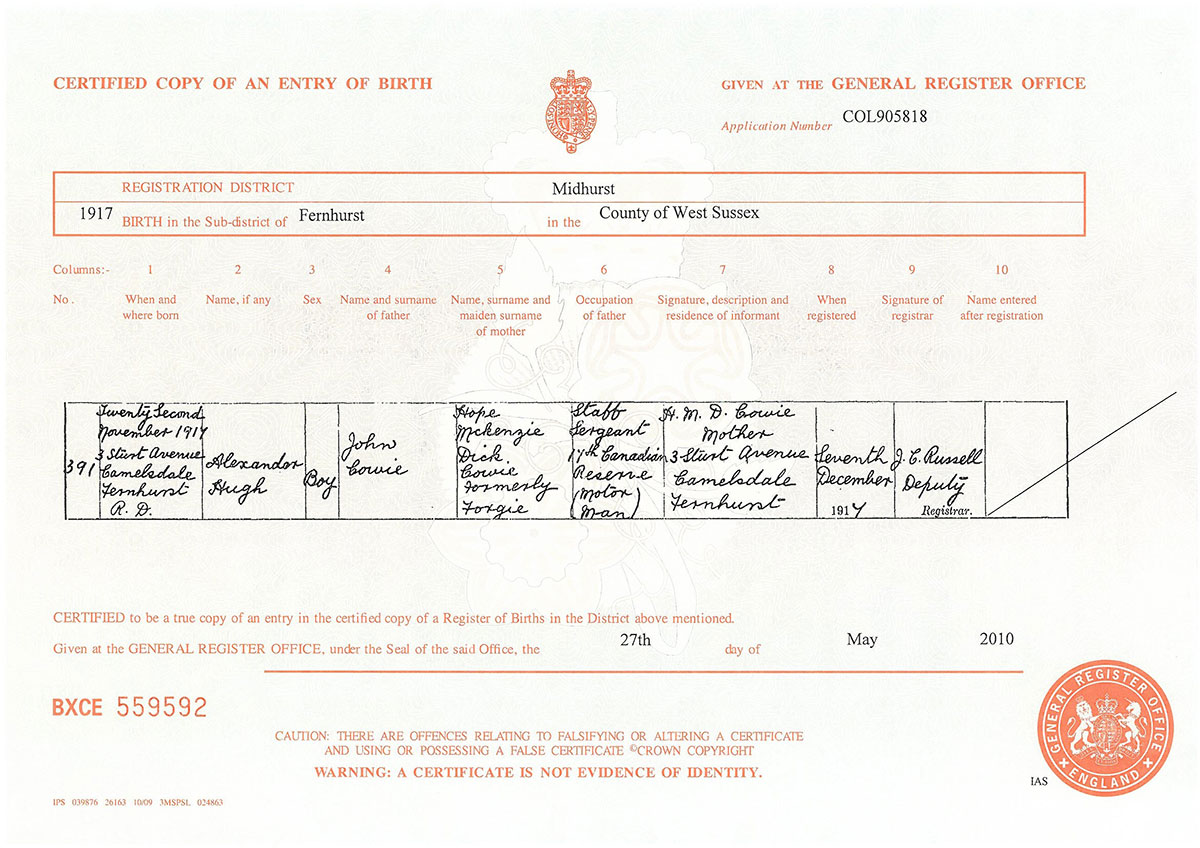 CERTIFIED COPY OF AN ENTRY OF BIRTH
GIVEN AT THE GENERAL REGISTER OFFICE
Application Number COL905818
REGISTRATION DISTRICT Midhurst
1917 BIRTH in the Sub-district of Fernhurst in the County of West Sussex
Columns:- 1 2 3 4 5 6 7 8 9 10
No. When and where born
Name, if any
Sex
Name and surname of father
Name, surname and maiden surname of mother
Occupation of father
Signature, description and residence of informant
When registered
Signature of registrar
Name entered after registration
391
Twenty Second
November 1917
3 Sturt Avenue
Camelsdale
Fernhurst
R. D.
Alexander
Hugh
Boy
John
Cowie
Hope
Mckenzie
Dick
Cowie
formerly
Forgie
Staff
Sergeant
17th Canadian
Reserve
(Motor
Man)
H. M. D. Cowie
Mother
3 Sturt Avenue
Camelsdale
Fernhurst
Seventh
December
1917
J. C. Russell
Deputy
Registrar.
CERTIFIED to be a true copy of an entry in the certified copy of a Register of Births in the District above mentioned.
Given at the GENERAL REGISTER OFFICE, under the Seal of the said Office, the 27th day of May 2010
BXCE 559592
CAUTION: THERE ARE OFFENCES RELATING TO FALSIFYING OR ALTERING A CERTIFICATE
AND USING OR POSSESSING A FALSE CERTIFICATE ©CROWN COPYRIGHT
WARNING: A CERTIFICATE IS NOT EVIDENCE OF IDENTITY.
GENERAL REGISTER OFFICE
ENGLAND
IAS
IPS 039876 26163 10/09 3MSPSL 024863